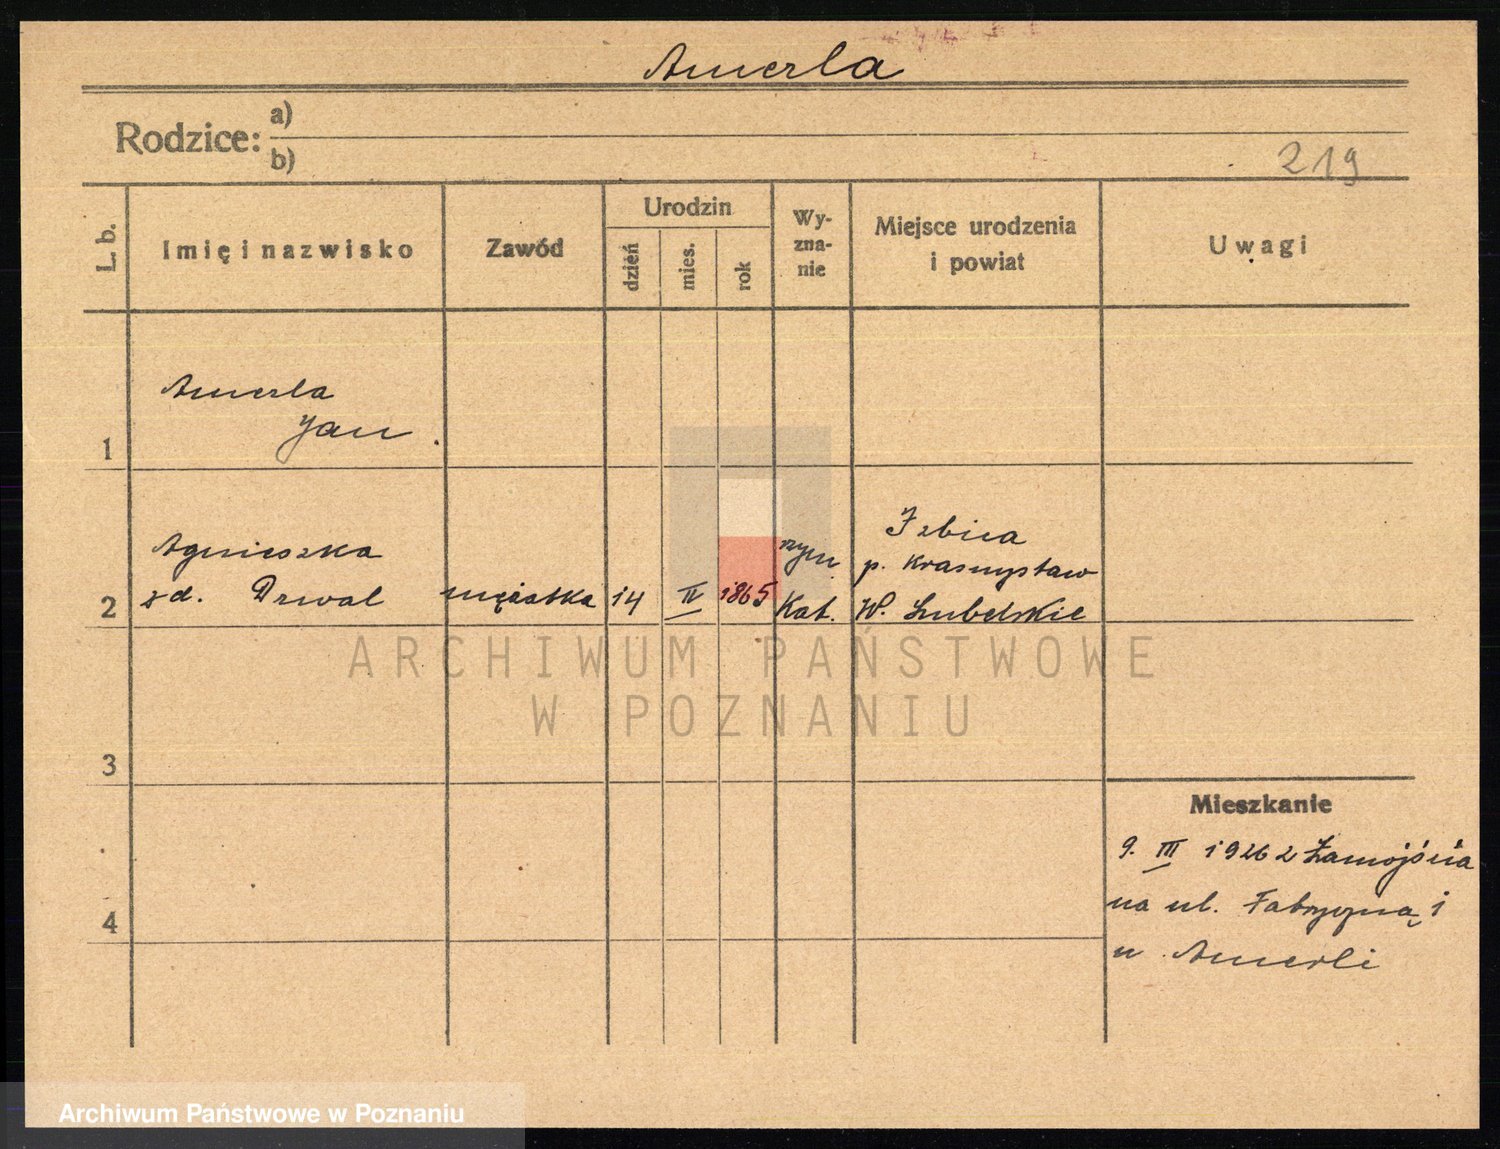 Amerla
Rodzice: a)
b)
219
L. b.
Imię i nazwisko
Zawód
Urodzin
dzień
mies.
rok
Wy-
zna-
nie
Miejsce urodzenia
i powiat
Uwagi
1
Amerla
Jan
2
Agnieszka
zd. Drwal
mężatka
14
II
1865
rzym.
Kat.
Izbica
p. Krasnystaw
W. Lubelskie
3
4
Mieszkanie
9. III 1926 z Zamojścia
na ul. Fabryczną 1
u Amerli
ARCHIWUM PAŃSTWOWE
W POZNANIU
Archiwum Państwowe w Poznaniu